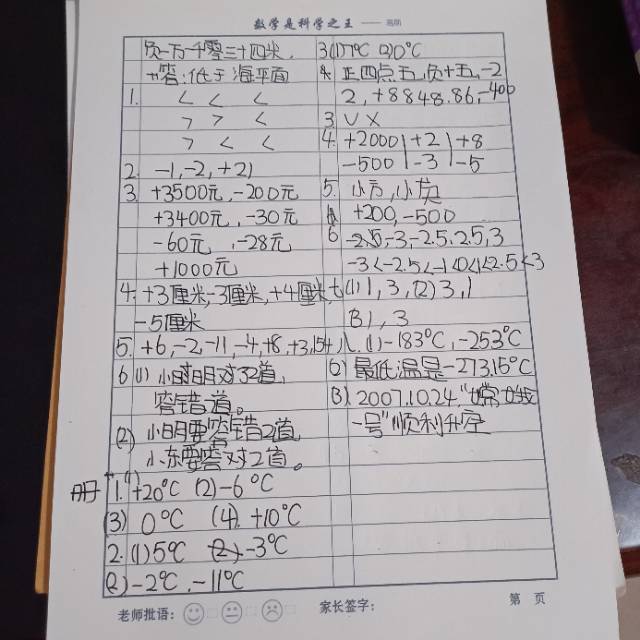 数学是科学之王
负一万一千零三十四米.
答:低于海平面
1. < < <
> > <
> < <
2. -1,-2,+21
3. +3500元,-200元
+3400元,-30元
-60元,-28元
+1000元
4. +3厘米,-3厘米,+4厘米
-5厘米
5. +6,-2,-11,-4,+8,+3,154
6 (1) 小明对了2道,
答错一道。
(2) 小明要答错2道,
小东要答对2道。
册 1. (1) +20°C (2) -6°C
(3) 0°C (4). +10°C
2. (1) 5°C (2) -3°C
(2) -2°C, -11°C
3 (1) 7°C (2) 0°C
正四点五,负十五,-2
2, +8848.86, -400
3 ∨ ×
4. +2000 | +2 | +8
-500 | -3 | -5
5. 小方,小英
+200, -500
6 -2.5,-3,-2.5,2.5,3
-3<-2.5<-1<0<1<2.5<3
七 (1) 1, 3, (2) 3, 1
(3) , 3
八. (1) -183°C, -253°C
(2) 最低温是-273.15°C
(3) 2007.10.24."嫦娥
一号"顺利升空
老师批语:
家长签字:
第 页